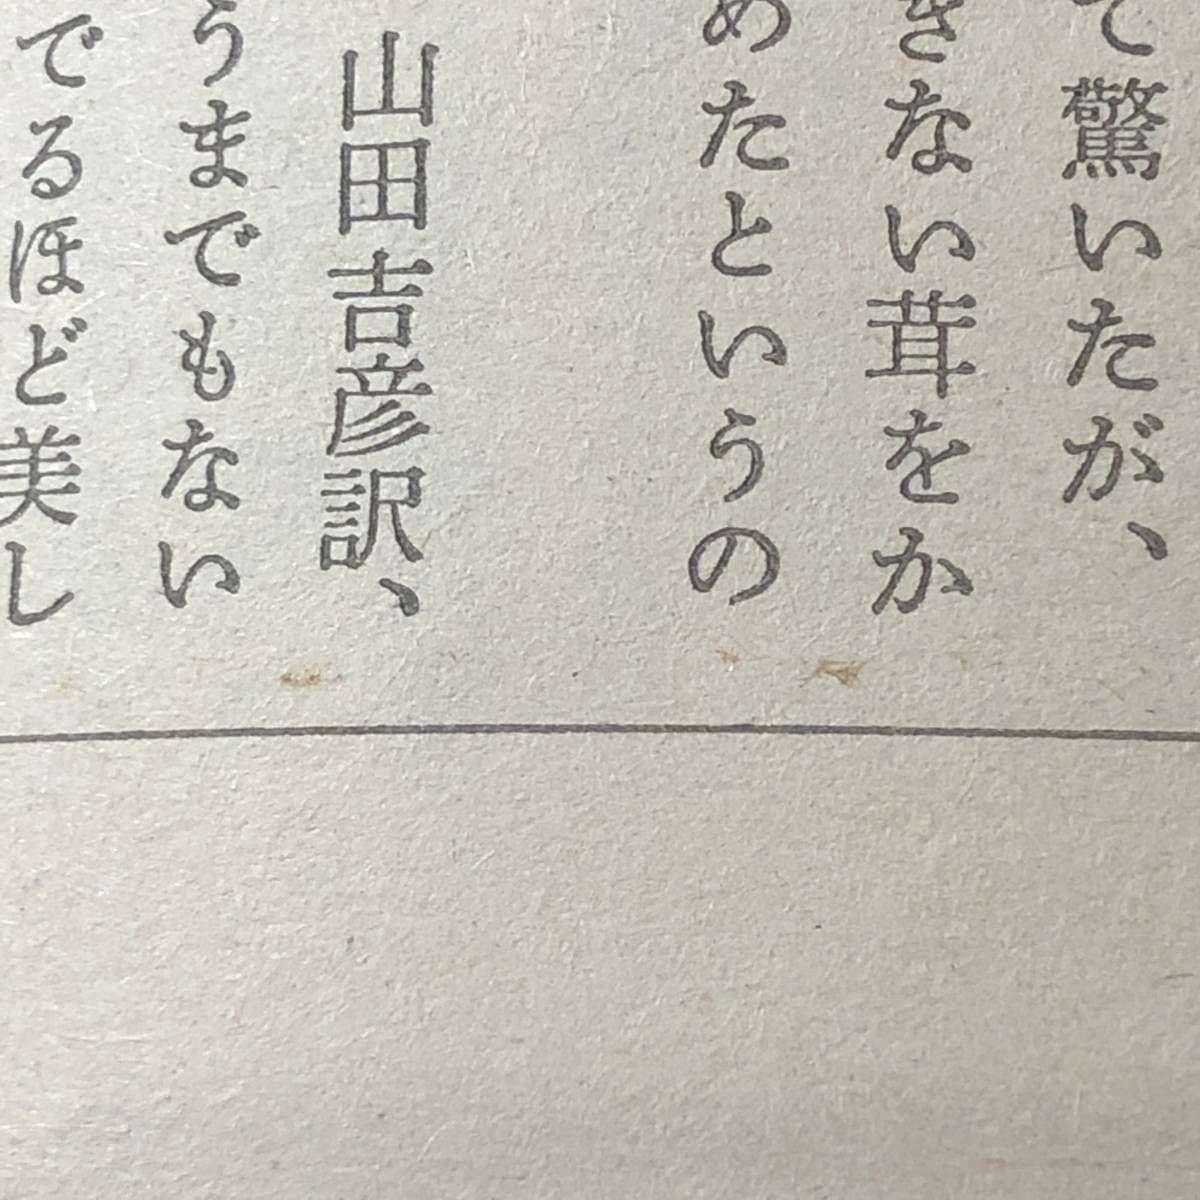 て驚いたが、
きない茸をか
めたというの
山田吉彦訳、
うまでもない
でるほど美し